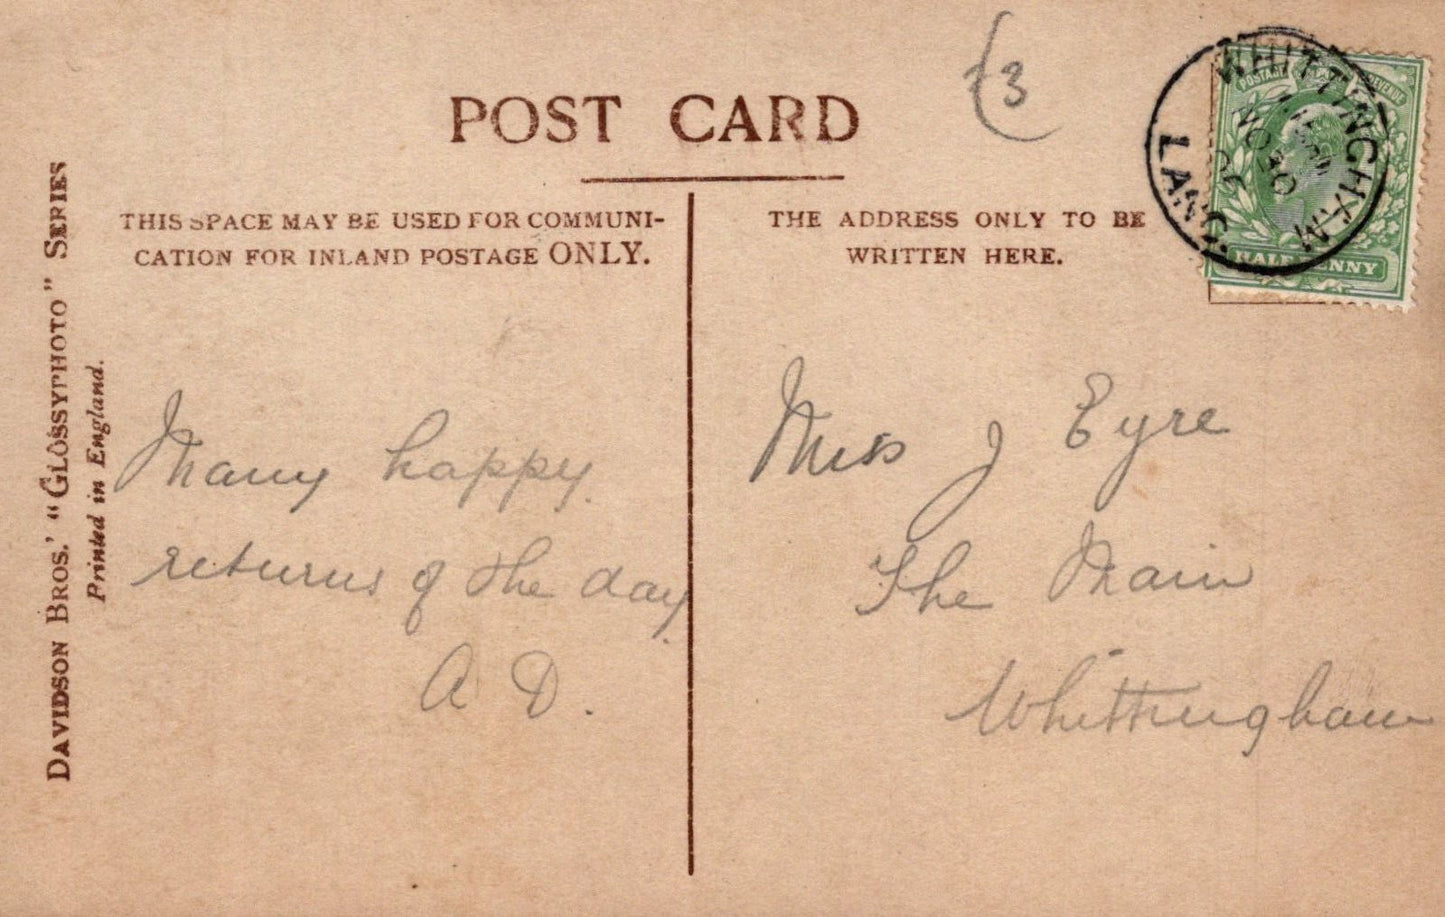 POST CARD
THIS SPACE MAY BE USED FOR COMMUNI-
CATION FOR INLAND POSTAGE ONLY.
THE ADDRESS ONLY TO BE
WRITTEN HERE.
DAVIDSON BROS.' "GLOSSYPHOTO" SERIES
Printed in England.
3
WHITTINGHAM
LANC.
POSTAGE REVENUE
HALFPENNY
Many happy
returns of the day
A D.
Miss J Eyre
The Main
Whittingham